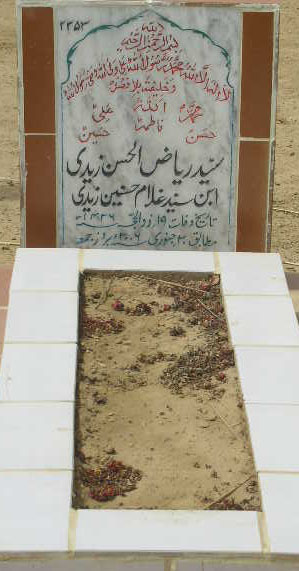 ۲۳۵۳
بسم اللہ الرحمن الرحیم
لا الہ الا اللہ محمد رسول اللہ علی ولی اللہ وصی رسول اللہ
وخلیفتہ بلا فصل
محمد اللہ علی
حسن فاطمہ حسین
سید ریاض الحسن زیدی
ابن سید غلام حسنین زیدی
تاریخ وفات ۱۹ ذوالحجہ ۱۴۲۶ھ
مطابق ۲۰ جنوری ۲۰۰۶ء بروز جمعہ